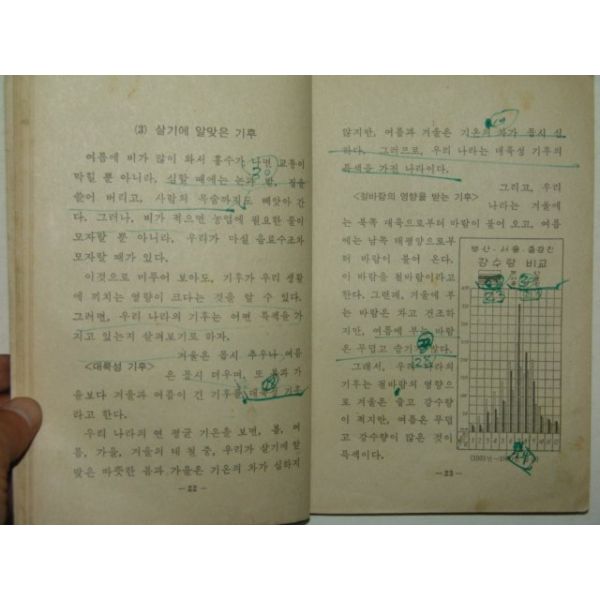 (3) 살기에 알맞은 기후
여름에 비가 많이 와서 홍수가 나면 교통이
막힐 뿐 아니라, 심할 때에는 논과 밭, 집을
쓸어 버리고, 사람의 목숨까지도 빼앗아 간
다. 그러나, 비가 적으면 농업에 필요한 물이
모자랄 뿐 아니라, 우리가 마실 음료수조차
모자랄 때가 있다.
이것으로 미루어 보아도, 기후가 우리 생활
에 끼치는 영향이 크다는 것을 알 수 있다.
그러면, 우리 나라의 기후는 어떤 특색을 가
지고 있는지 살펴보기로 하자.
<대륙성 기후>
겨울은 몹시 추우나 여름
은 몹시 더우며, 또 봄과 가
을보다 겨울과 여름이 긴 기후를 대륙성 기후
라고 한다.
우리 나라의 연 평균 기온을 보면, 봄, 여
름, 가을, 겨울의 네 철 중, 우리가 살기에 알
맞은 따뜻한 봄과 가을은 기온의 차가 심하지
— 22 —
않지만, 여름과 겨울은 기온의 차가 몹시 심
하다. 그러므로, 우리 나라는 대륙성 기후의
특색을 가진 나라이다.
<철바람의 영향을 받는 기후>
그리고, 우리
나라는 겨울에
는 북쪽 대륙으로부터 바람이 불어 오고, 여름
에는 남쪽 태평양으로부
터 바람이 불어 온다.
이 바람을 철바람이라고
한다. 그런데, 겨울에 부
는 바람은 차고 건조하
지만, 여름에 부는 바람
은 무덥고 습기가 많다.
그래서, 우리 나라의
기후는 철바람의 영향으
로 겨울은 춥고 강수량
이 적지만, 여름은 무덥
고 강수량이 많은 것이
특색이다.
부산·서울·중강진
강수량 비교
— 23 —